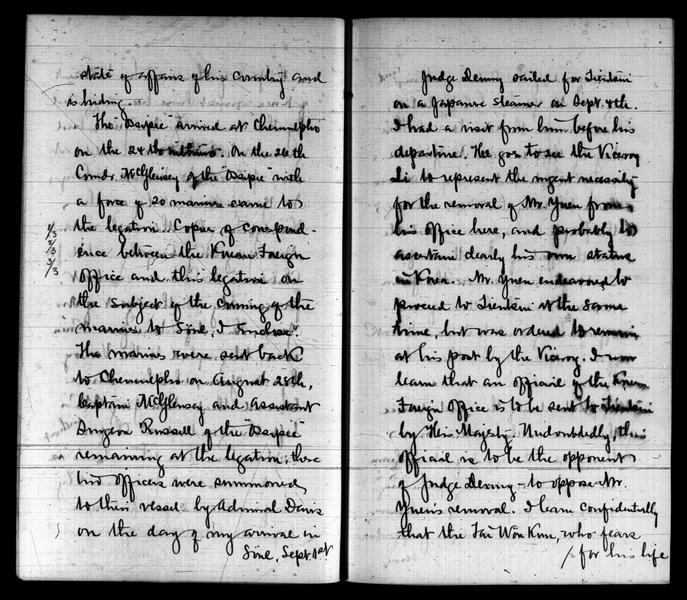 state of affairs of his country and
is hiding.
The "Ossipee" arrived at Chemulpho
on the 24th . On the 26th
Comdr. McGlensey of the "Ossipee" with
a force of 20 marines came to
the legation. Copies of correspond-
1/3
2/3
3/3
ence between the Korean Foreign
Office and this legation on
the subject of the coming of the
"marines to Söul, I enclose".
The marines were sent back
to Chemulpho on August 28th,
Captain McGlensey and Assistant
Surgeon Russell of the "Ossipee"
remaining at the legation; these
two officers were summoned
to their vessel by Admiral Davis
on the day of my arrival in
Söul, Sept. 1st
Judge Denny sailed for Tientsin
on a Japanese steamer on Sept. 4th.
I had a visit from him before his
departure. He goes to see the Viceroy
Li to represent the urgent necessity
for the removal of Mr. Yuen from
his office here, and probably to
ascertain clearly his own status
in Korea. Mr. Yuen endeavored to
proceed to Tientsin at the same
time, but was ordered to remain
at his post by the Viceroy. I now
learn that an official of the Korean
Foreign Office is to be sent to Tientsin
by His Majesty. Undoubtedly, this
official is to be the opponent
of Judge Denny - to oppose Mr.
Yuen's removal. I learn confidentially
that the Tai Won Kun, who fears
for his life